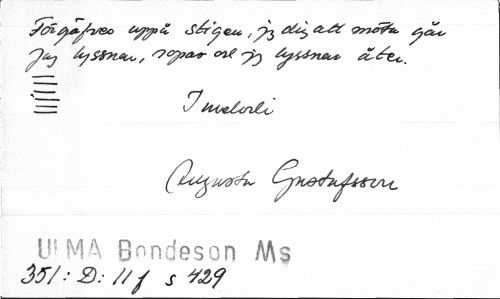 Förgäfves uppå stigen, jg dig att möta går
Jag lyssnar, ropar och jg lyssnar åter.
I melodi
Augusta Gustafsson
ULMA Bondeson Ms
351: D: 11 f s 429